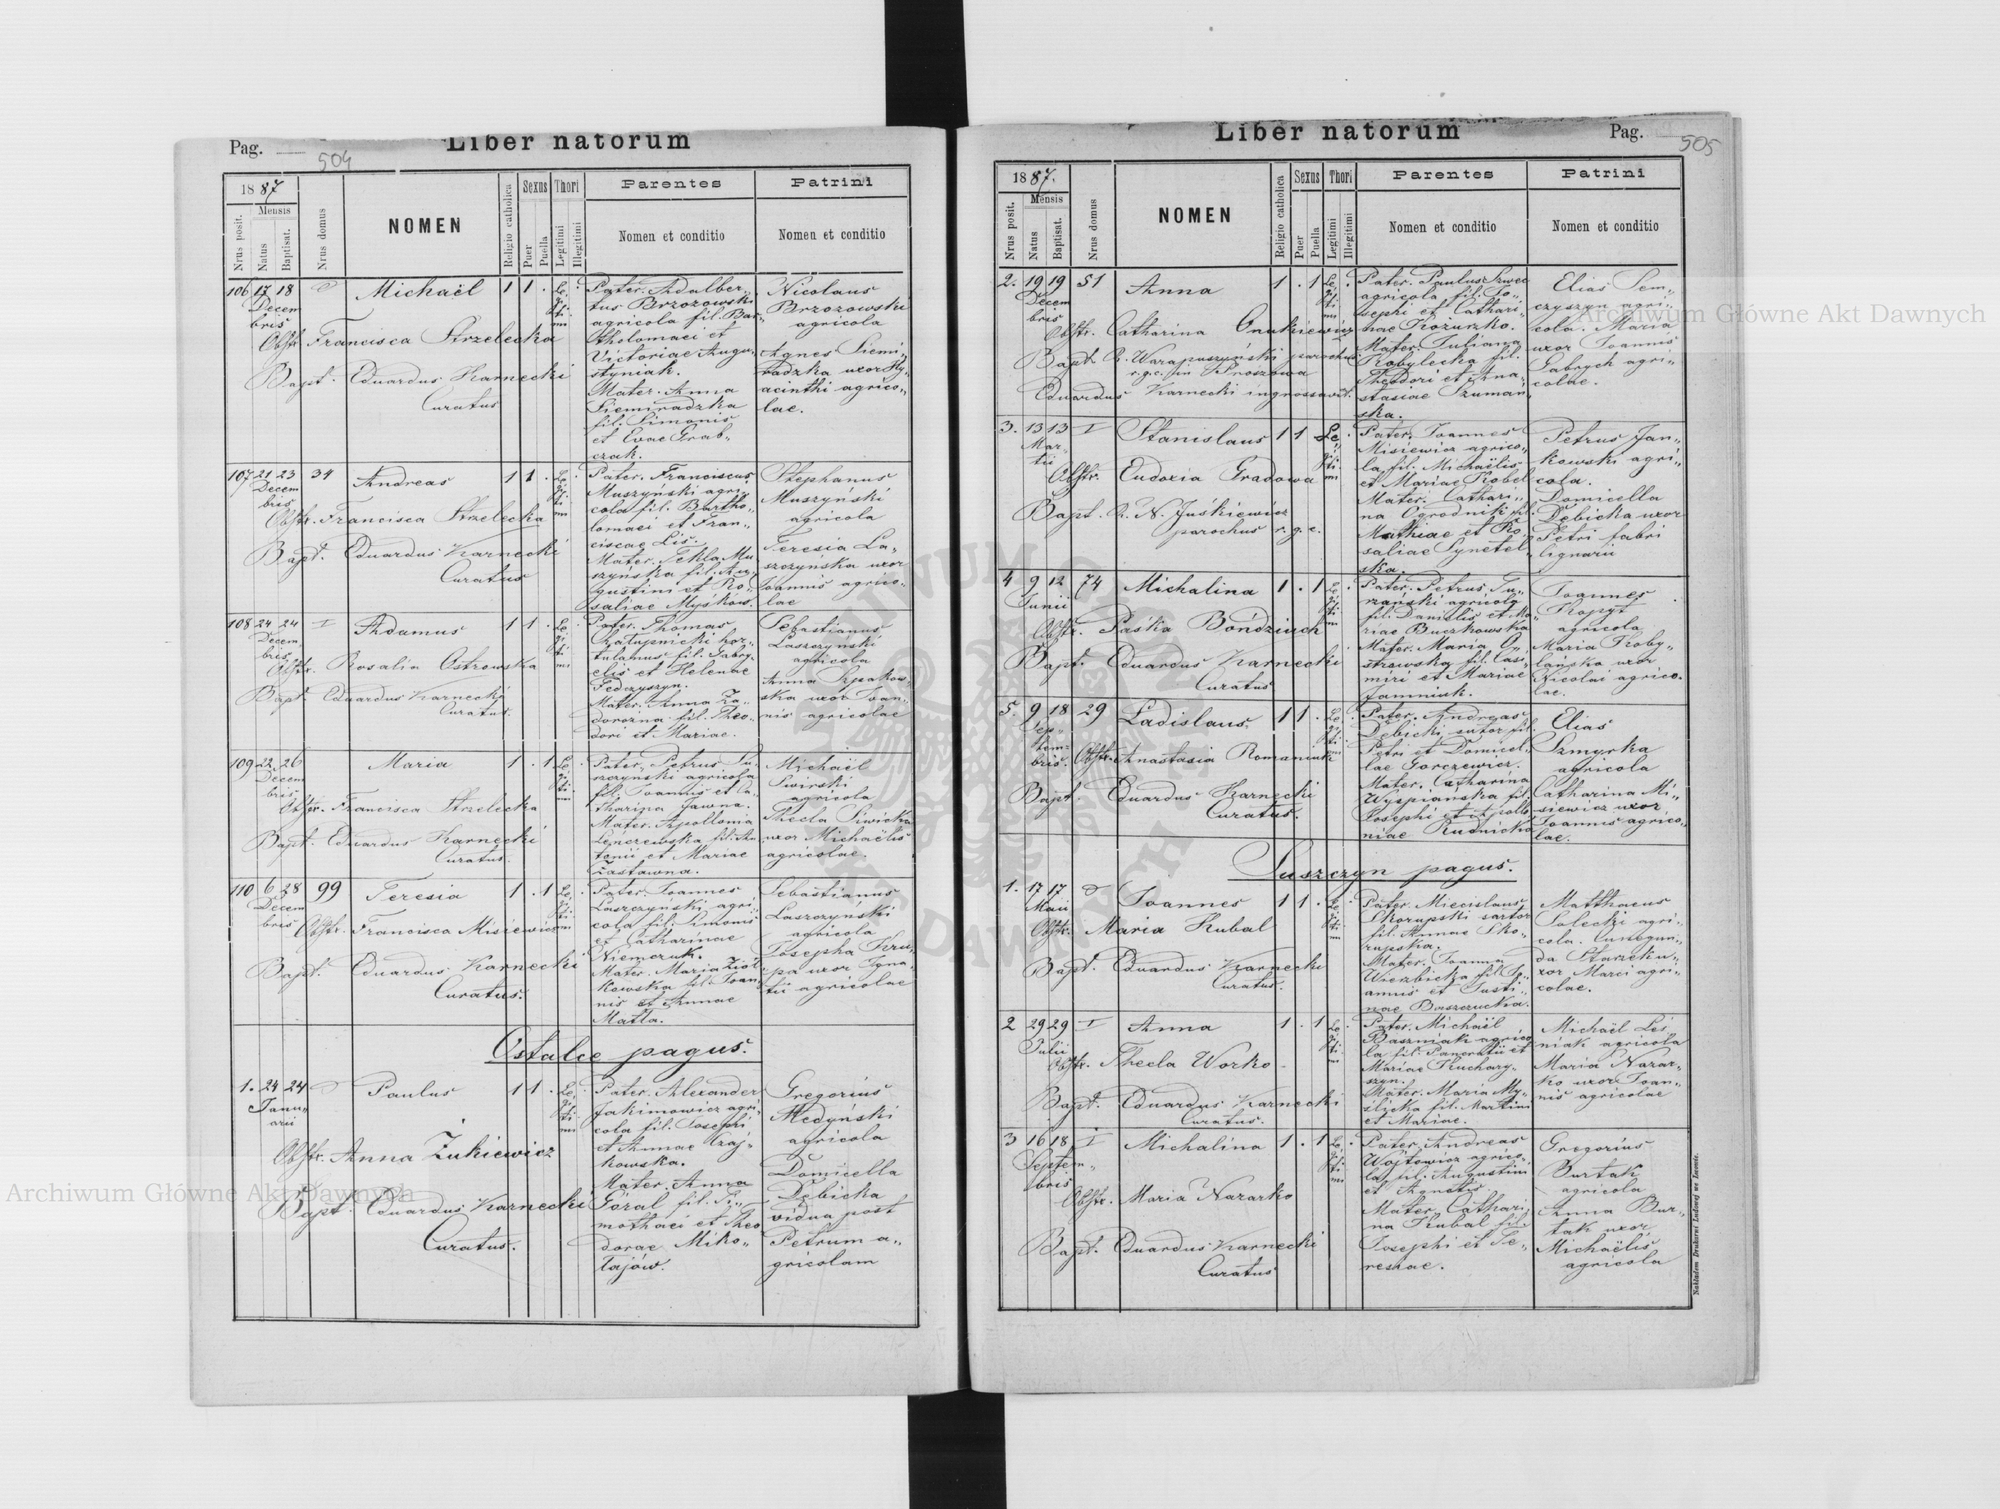 Pag. 504
Liber natorum
1887
Nrus posit.
Mensis
Natus
Baptisat.
Nrus domus
NOMEN
Religio catholica
Sexus
Puer
Puella
Thori
Legitimi
Illegitimi
Parentes
Nomen et conditio
Patrini
Nomen et conditio
106 17 18 Michaël 1 1 . Le„
Decem
bris
gi„
ti„
mi
Obstr. Francisca Strzelecka
Bapt. Eduardus Karnecki
Curatus
Pater. Adalber„
tus Brzozowski
agricola fil. Bar„
tholomaei et
Victoriae Augu„
styniak.
Mater. Anna
Siemiradzka
fil. Simonis
et Evae Grab„
czak.
Nicolaus
Brzozowski
agricola
Agnes Siemi„
radzka uxor Hy„
acinthi agrico„
lae.
107 21 23 34 Andreas 1 1 . Le„
Decem
bris
gi„
ti„
mi
Obstr. Francisca Strzelecka
Bapt. Eduardus Karnecki
Curatus
Pater. Franciscus
Muszyński agri„
cola fil. Bartho„
lomaei et Fran„
ciscae Lis.
Mater. Tekla Mu
szyńska fil. Au„
gustini et Ro„
saliae Myśków.
Stephanus
Muszyński
agricola
Teresia La„
szczyńska uxor
Joannis agrico„
lae
108 24 24 Adamus 1 1 . Le„
Decem
bris
gi„
ti„
mi
Obstr. Rosalia Ostrowska
Bapt. Eduardus Karnecki
Curatus.
Pater. Thomas
Chałupnicki hor„
tulanus fil. Gabry„
elis et Helenae
Fedczyszyn.
Mater. Anna Za„
dorozna fil. Theo„
dori et Mariae.
Sebastianus
Laszczyński
agricola
Anna Szpakow
ska uxor Joan„
nis agricolae
109 22 26 Maria 1 . 1 Le„
Decem
bris
gi„
ti„
mi
Obstr. Francisca Strzelecka
Bapt. Eduardus Karnecki
Curatus.
Pater. Petrus La„
szczynski agricola
fil. Joannis et Ca„
tharina Jawna.
Mater. Apollonia
Lenczewska fil. An
tonii et Mariae
Zastawna.
Michaël
Siwirski
agricola
Thecla Siwicka
uxor Michaëlis
agricolae.
110 6 28 99 Teresia 1 . 1 Le„
Decem
bris
gi„
ti„
mi
Obstr. Francisca Misiewicz
Bapt. Eduardus Karnecki
Curatus.
Pater. Joannes
Laszczyński agri„
cola fil. Simonis
et Catharinae
Niemczuk.
Mater. Maria Ziół
kowska fil. Joan„
nis et Annae
Matla.
Sebastianus
Laszczyński
agricola
Josepha Kru„
pa uxor Igna„
tii agricolae
Ostalce pagus.
1. 24 24 Paulus 1 1 . Le„
Janu„
arii
gi„
ti„
mi
Obstr. Anna Żukiewicz
Bapt. Eduardus Karnecki
Curatus.
Pater. Alexander
Jakimowicz agri„
cola fil. Josephi
et Annae Czaj„
kowska.
Mater. Anna
Góral fil. Ti„
mothaei et Theo
dorae Miko„
łajów.
Gregorius
Medyński
agricola
Domicella
Dębicka
vidua post
Petrum a„
gricolam
Liber natorum
Pag. 505
1887.
Nrus posit.
Mensis
Natus
Baptisat.
Nrus domus
NOMEN
Religio catholica
Sexus
Puer
Puella
Thori
Legitimi
Illegitimi
Parentes
Nomen et conditio
Patrini
Nomen et conditio
2. 19 19 51 Anna 1 . 1 Le„
Decem
bris
gi„
ti„
mi
Obstr. Catharina Onukiewicz
Bapt. R. Warapuszyński parochus
r.g.c. in Proszowa
Eduardus Karnecki ingrossavit.
Pater. Paulus Szwec
agricola fil. Jo„
sephi et Cathari„
nae Kożuszko.
Mater. Juliana
Kobylecka fil.
Theodori et Ana„
stasiae Szumań„
ska.
Elias Sem„
czyszyn agri„
cola. Maria
uxor Joannis
Gabrych agri„
colae.
3. 13 13 Stanislaus 1 1 . Le„
Mar„
tii
gi„
ti„
mi
Obstr. Eudoxia Gradowa
Bapt. R. N. Juśkiewicz
parochus r.g.c.
Pater. Joannes
Misiewicz agrico„
la fil. Michaëlis
et Mariae Kobel
Mater. Cathari„
na Ogrodnik fil.
Mathiae et Ro„
saliae Synetel„
ska.
Petrus Jan„
kowski agri„
cola.
Domicella
Dębicka uxor
Petri fabri
lignarii
4 9 12 74 Michalina 1 . 1 Le„
Junii
gi„
ti„
mi
Obstr. Paśka Bóndziuch
Bapt. Eduardus Karnecki
Curatus
Pater. Petrus Tu„
rzański agricola
fil. Danielis et Ma„
riae Buczkowska
Mater. Maria O„
strowska fil. Casi„
miri et Mariae
Jamniuk.
Joannes
Kopyt
agricola
Maria Koby„
lańska uxor
Nicolai agrico„
lae.
5. 9 18 29 Ladislaus 1 1 . Le„
Sep„
tem„
bris.
gi„
ti„
mi
Obstr. Anastasia Romaniuk
Bapt. Eduardus Karnecki
Curatus.
Pater. Andreas
Dębicki sutor fil.
Petri et Domicel„
lae Gorczewicz.
Mater. Catharina
Wyspiańska fil.
Josephi et Apollo„
niae Rudnicka
Elias
Szmyrka
agricola
Catharina Mi„
siewicz uxor
Joannis agrico„
lae.
Suszczyn pagus.
1. 17 17 Joannes 1 1 . Le„
Maii
gi„
ti„
mi
Obstr. Maria Kubal
Bapt. Eduardus Karnecki
Curatus.
Pater. Miecislaus
Skorupski sartor
fil. Annae Sko„
rupska.
Mater. Joanna
Wiczbicka fil. Jo„
annis et Justi„
nae Baszczucka.
Matthaeus
Solecki agri„
cola. Cunegun„
da Starzek u„
xor Marci agri„
colae.
2 29 29 Anna 1 . 1 Le„
Julii
gi„
ti„
mi
Obstr. Thecla Worko
Bapt. Eduardus Karnecki
Curatus.
Pater. Michaël
Baszniak agrico
la fil. Pancratii et
Mariae Kuchary„
szyn.
Mater. Maria My„
ślicka fil. Martini
et Mariae.
Michaël Leś
niak agricola
Maria Nazar„
ko uxor Joan„
nis agricolae
3 16 18 Michalina 1 . 1 Le„
Septem„
bris
gi„
ti„
mi
Obstr. Maria Nazarko
Bapt. Eduardus Karnecki
Curatus
Pater. Andreas
Wójtowicz agrico„
la, fil. Augustini
et Agnetis
Mater. Cathari„
na Kubal fil.
Josephi et Te„
resiae.
Gregorius
Burtak
agricola
Anna Bur„
tak uxor
Michaëlis
agricola
Nakładem Drukarni Ludowej we Lwowie.
Archiwum Główne Akt Dawnych
Archiwum Główne Akt Dawnych